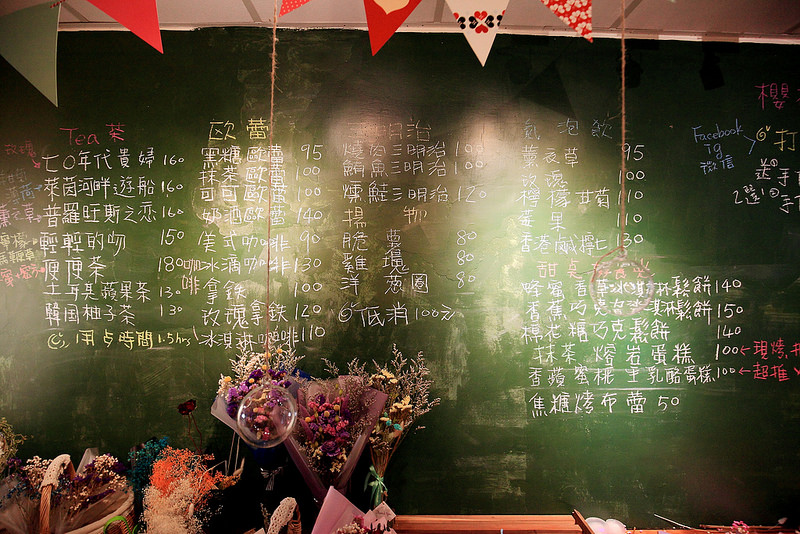 Tea 茶
七〇年代貴婦 160
萊茵河畔遊船 160
普羅旺斯之恋 160
輕輕的吻 150
便便茶 180
土耳其蘋果茶 130
韓國柚子茶 130
用占時間 1.5hrs
歐蕾
黑糖歐蕾 95
抹茶歐蕾 100
可可歐蕾 100
奶酒歐蕾 140
咖啡
美式咖啡 90
冰滴咖啡 130
拿鐵 100
玫瑰拿鐵 120
冰淇淋咖啡 110
三明治
燒肉三明治 100
鮪魚三明治 100
燻鮭三明治 120
揚物
脆薯 80
雞塊 80
洋蔥圈 80
低消100元
氣泡飲
薰衣草 95
玫瑰
檸檬甘菊 110
蘋果 110
香港鹹檸七 130
甜
蜂蜜香草冰淇淋鬆餅 140
香蕉巧克力冰淇淋鬆餅 150
棉花糖巧克鬆餅 140
抹茶熔岩蛋糕 100 ← 現烤
香蘋蜜桃生乳酪蛋糕 100 ← 超推
焦糖烤布蕾 50
櫻
Facebook
ig
微信
打
送手
2選1